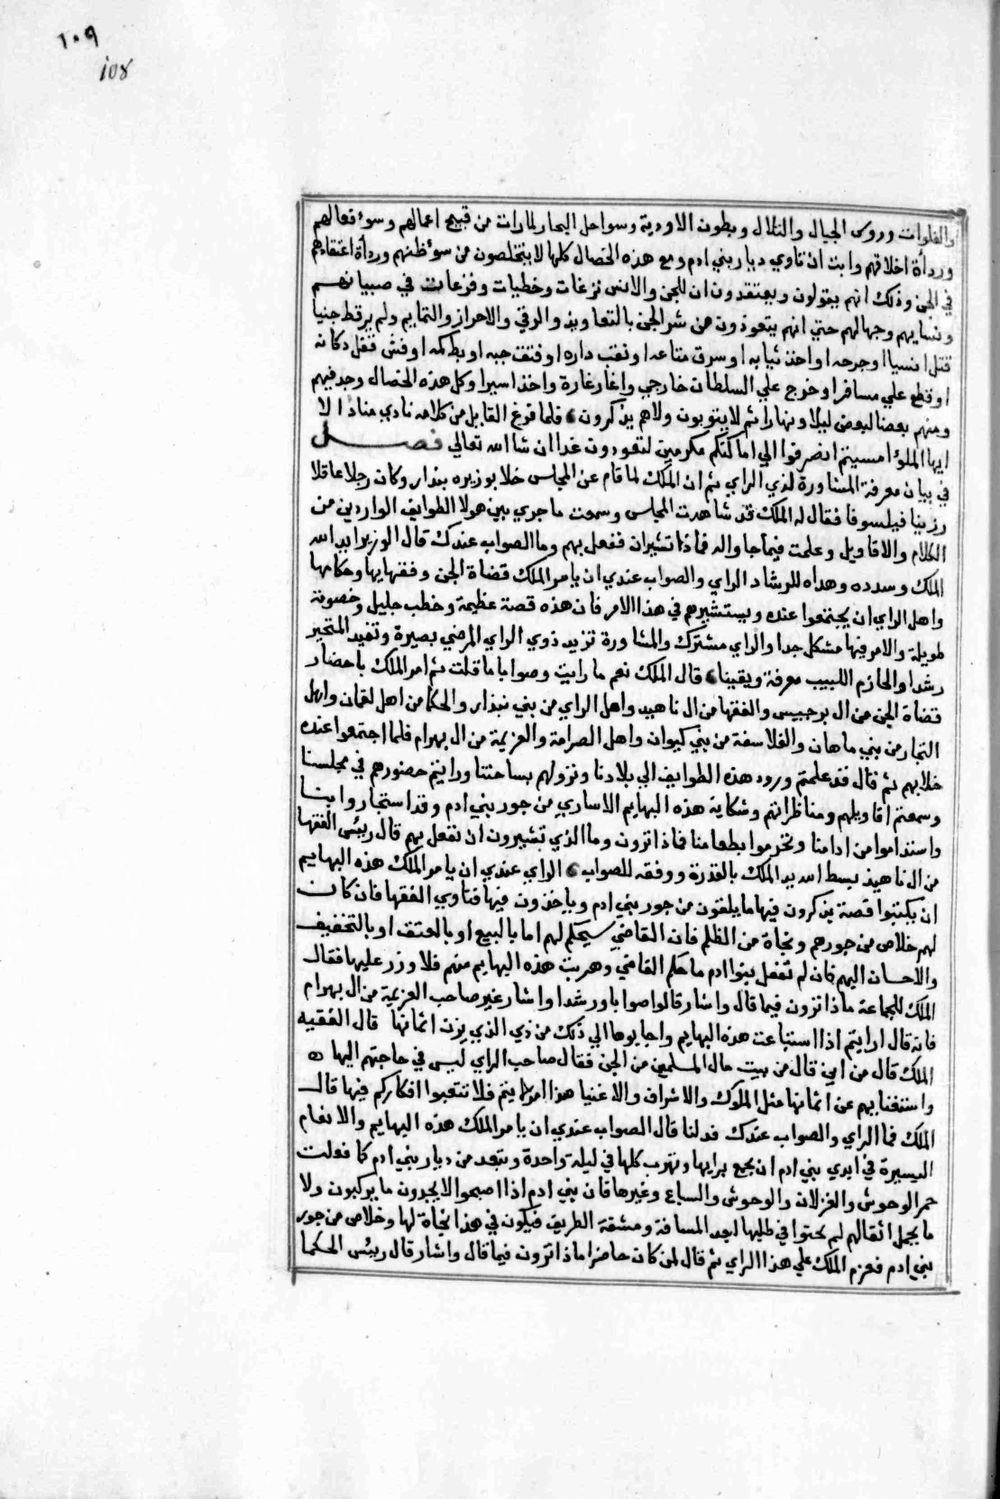 ١٠٩
108
والفلوات وروس الجبال والتلال وبطون الاودية وسواحل البحار لما رات من قبيح اعمالهم وسوء فعالهم
ورداة اخلاقهم وابت ان تاوي ديار بني ادم ومع هذه الخصال كلها لا يتخلصون من سوء ظنهم ورداة اعتقادهم
في الجن وذلك انهم يقولون ويعتقدون ان للجن والانس نزغات وخطيات وفزعات في صبيانهم
ونسايهم وجهالهم حتي انهم يتعوذون من شر الجن بالتعاويذ والرقي والاحراز والتمايم ولم ير قط جنيا
قتل انسيا او جرحه او اخذ ثيابه او سرق متاعه او نقب داره او فتق جيبه او بط كمه او فش قفل دكانه
او قطع علي مسافر او خرج علي السلطان خارجي واغار غارة واخذ اسيرا وكل هذه الخصال وجد فيهم
ومنهم بعضا لبعض ليلا ونهارا ثم لا يتوبون ولا هم يذكرون فلما فرغ القايل من كلامه نادي مناد الا
ايها الملوء امسيتم انصرفوا الي اماكنكم مكرمين لتعودون غدا ان شا الله تعالي فصـــل
في بيان معرفة المشاورة لذي الراي ثم ان الملك لما قام عن المجلس خلا بوزيره بيدار وكان رجلا عاقلا
رزينا فيلسوفا فقال له الملك قد شاهدت المجلس وسمعت ما جري بين هولا الطوايف الواردين من
الكلام والاقاويل وعلمت فيما جاوا له فماذا تشيران نفعل بهم وما الصواب عندك قال الوزير ايد الله
الملك وسدده وهداه للرشاد الراي والصواب عندي ان يامر الملك قضاة الجن وفقهايها وحكامها
واهل الراي ان يجتمعوا عنده ويستشيرهم في هذا الامر فان هذه قصة عظيمة وخطب جليل وخصومة
طويلة والامر فيها مشكل جدا والراي مشترك والمشاورة تزيد ذوي الراي المرضي بصيرة وتفيد المتحير
رشدا والحازم اللبيب معرفة ويقينا قال الملك نعم ما رايت وصوابا ما قلت ثم امر الملك باحضار
قضاة الجن من ال برجيس والفقها من ال ناهيد واهل الراي من بني بيدار والحكما من اهل لقمان واهل
التجار من بني ماهان والفلاسفة من بني كيوان واهل الصرامة والعزيمة من ال بهرام فلما اجتمعوا عنده
خلا بهم ثم قال قد علمتم ورود هذه الطوايف الي بلادنا ونزولهم بساحتنا ورايتم حضورهم في مجلسنا
وسمعتم اقاويلهم ومناظراتهم وشكاية هذه البهايم الاساري من جور بني ادم وقد استجاروا بنا
واستذموا من ادامنا وتحرموا بطعامنا فماذا ترون وما الذي تشيرون ان نفعل بهم قال رييس الفقها
من ال ناهيد بسط الله يد الملك بالقدرة ووفقه للصواب الراي عندي ان يامر الملك هذه البهايم
ان يكتبوا قصة يذكرون فيها ما يلقون من جور بني ادم وياخذون فيها فتاوي الفقها فان كان
لهم خلاص من جورهم ونجاة من الظلم فان القاضي سيحكم لهم اما بالبيع او بالعتق او بالتخفيف
والاحسان اليهم فان لم تفعل بنوا ادم ما حكم القاضي وهربت هذه البهايم منهم فلا وزر عليها فقال
الملك للجماعة ماذا ترون فيما قال واشار قالوا صوابا ورشدا واشار غير صاحب العزيمة من ال بهرام
فانه قال ارايتم اذا استباعت هذه البهايم واجابوها الي ذلك من ذي الذي يزن اثمانها قال الفقيه
الملك قال من اين قال من بيت مال المسلمين من الجن فقال صاحب الراي ليس في حاجتهم اليها
واستغنايهم عن اثمانها مثل الملوك والاشراف والاغنيا هذا امر لا يتم فلا تتعبوا افكاركم فيها قال
الملك فما الراي والصواب عندك فدلنا قال الصواب عندي ان يامر الملك هذه البهايم والانعام
اليسيرة في ايدي بني ادم ان يجمع برايها وتهرب كلها في ليلة واحدة وتبعد من ديار بني ادم كما فعلت
حمر الوحوش والغزلان والوحوش والسباع وغيرها فان بني ادم اذا اصبحوا لا يجدون ما يركبون ولا
ما يحمل اثقالهم لم يحثوا في طلبها لبعد المسافة ومشقة الطريق فيكون في هذا نجاة لها وخلاص من جور
بني ادم فعزم الملك علي هذا الراي ثم قال لمن كان حاضرا ماذا ترون فيما قال واشار قال رييس الحكما